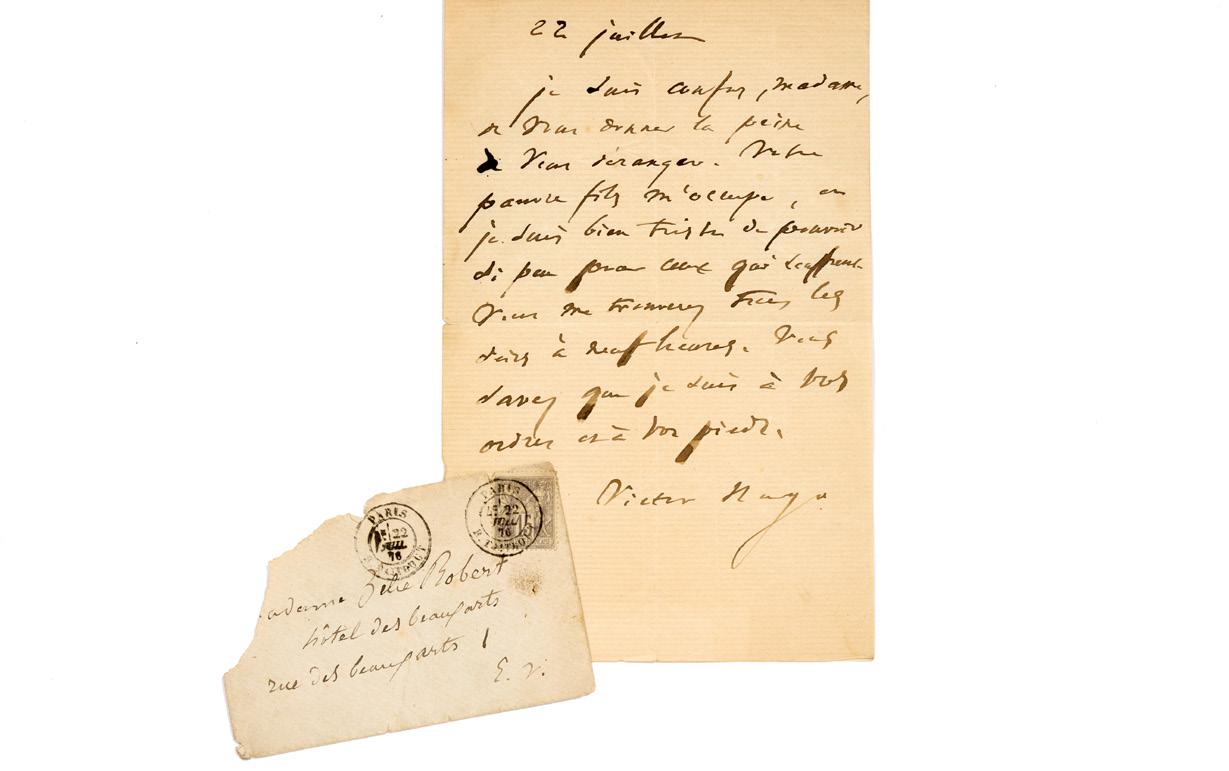 22 juillet
je suis confus, madame,
de vous donner la peine
de vous déranger. Votre
pauvre fils m'occupe, et
je suis bien triste de pouvoir
si peu pour ceux qui souffrent.
Vous me trouverez tous les
soirs à neuf heures. Vous
savez que je suis à vos
ordres et à vos pieds.
Victor Hugo
PARIS
22
JUIL
76
R. TAITBOUT
PARIS
22
JUIL
76
R. TAITBOUT
15
adame Zélie Robert
hôtel des beaux arts
rue des beaux arts 1
E. V.